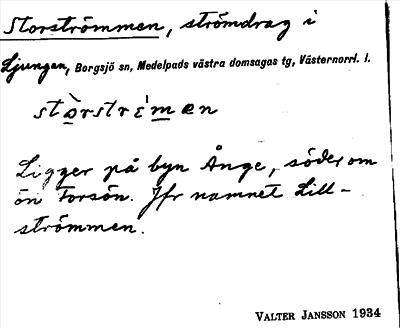 Storströmmen, strömdrag i
Ljungan, Borgsjö sn, Medelpads västra domsagas tg, Västernorrl. l.
Ligger på byn Ånge, söder om
ön Torsön. Jfr namnet Lill-
strömmen.
VALTER JANSSON 1934